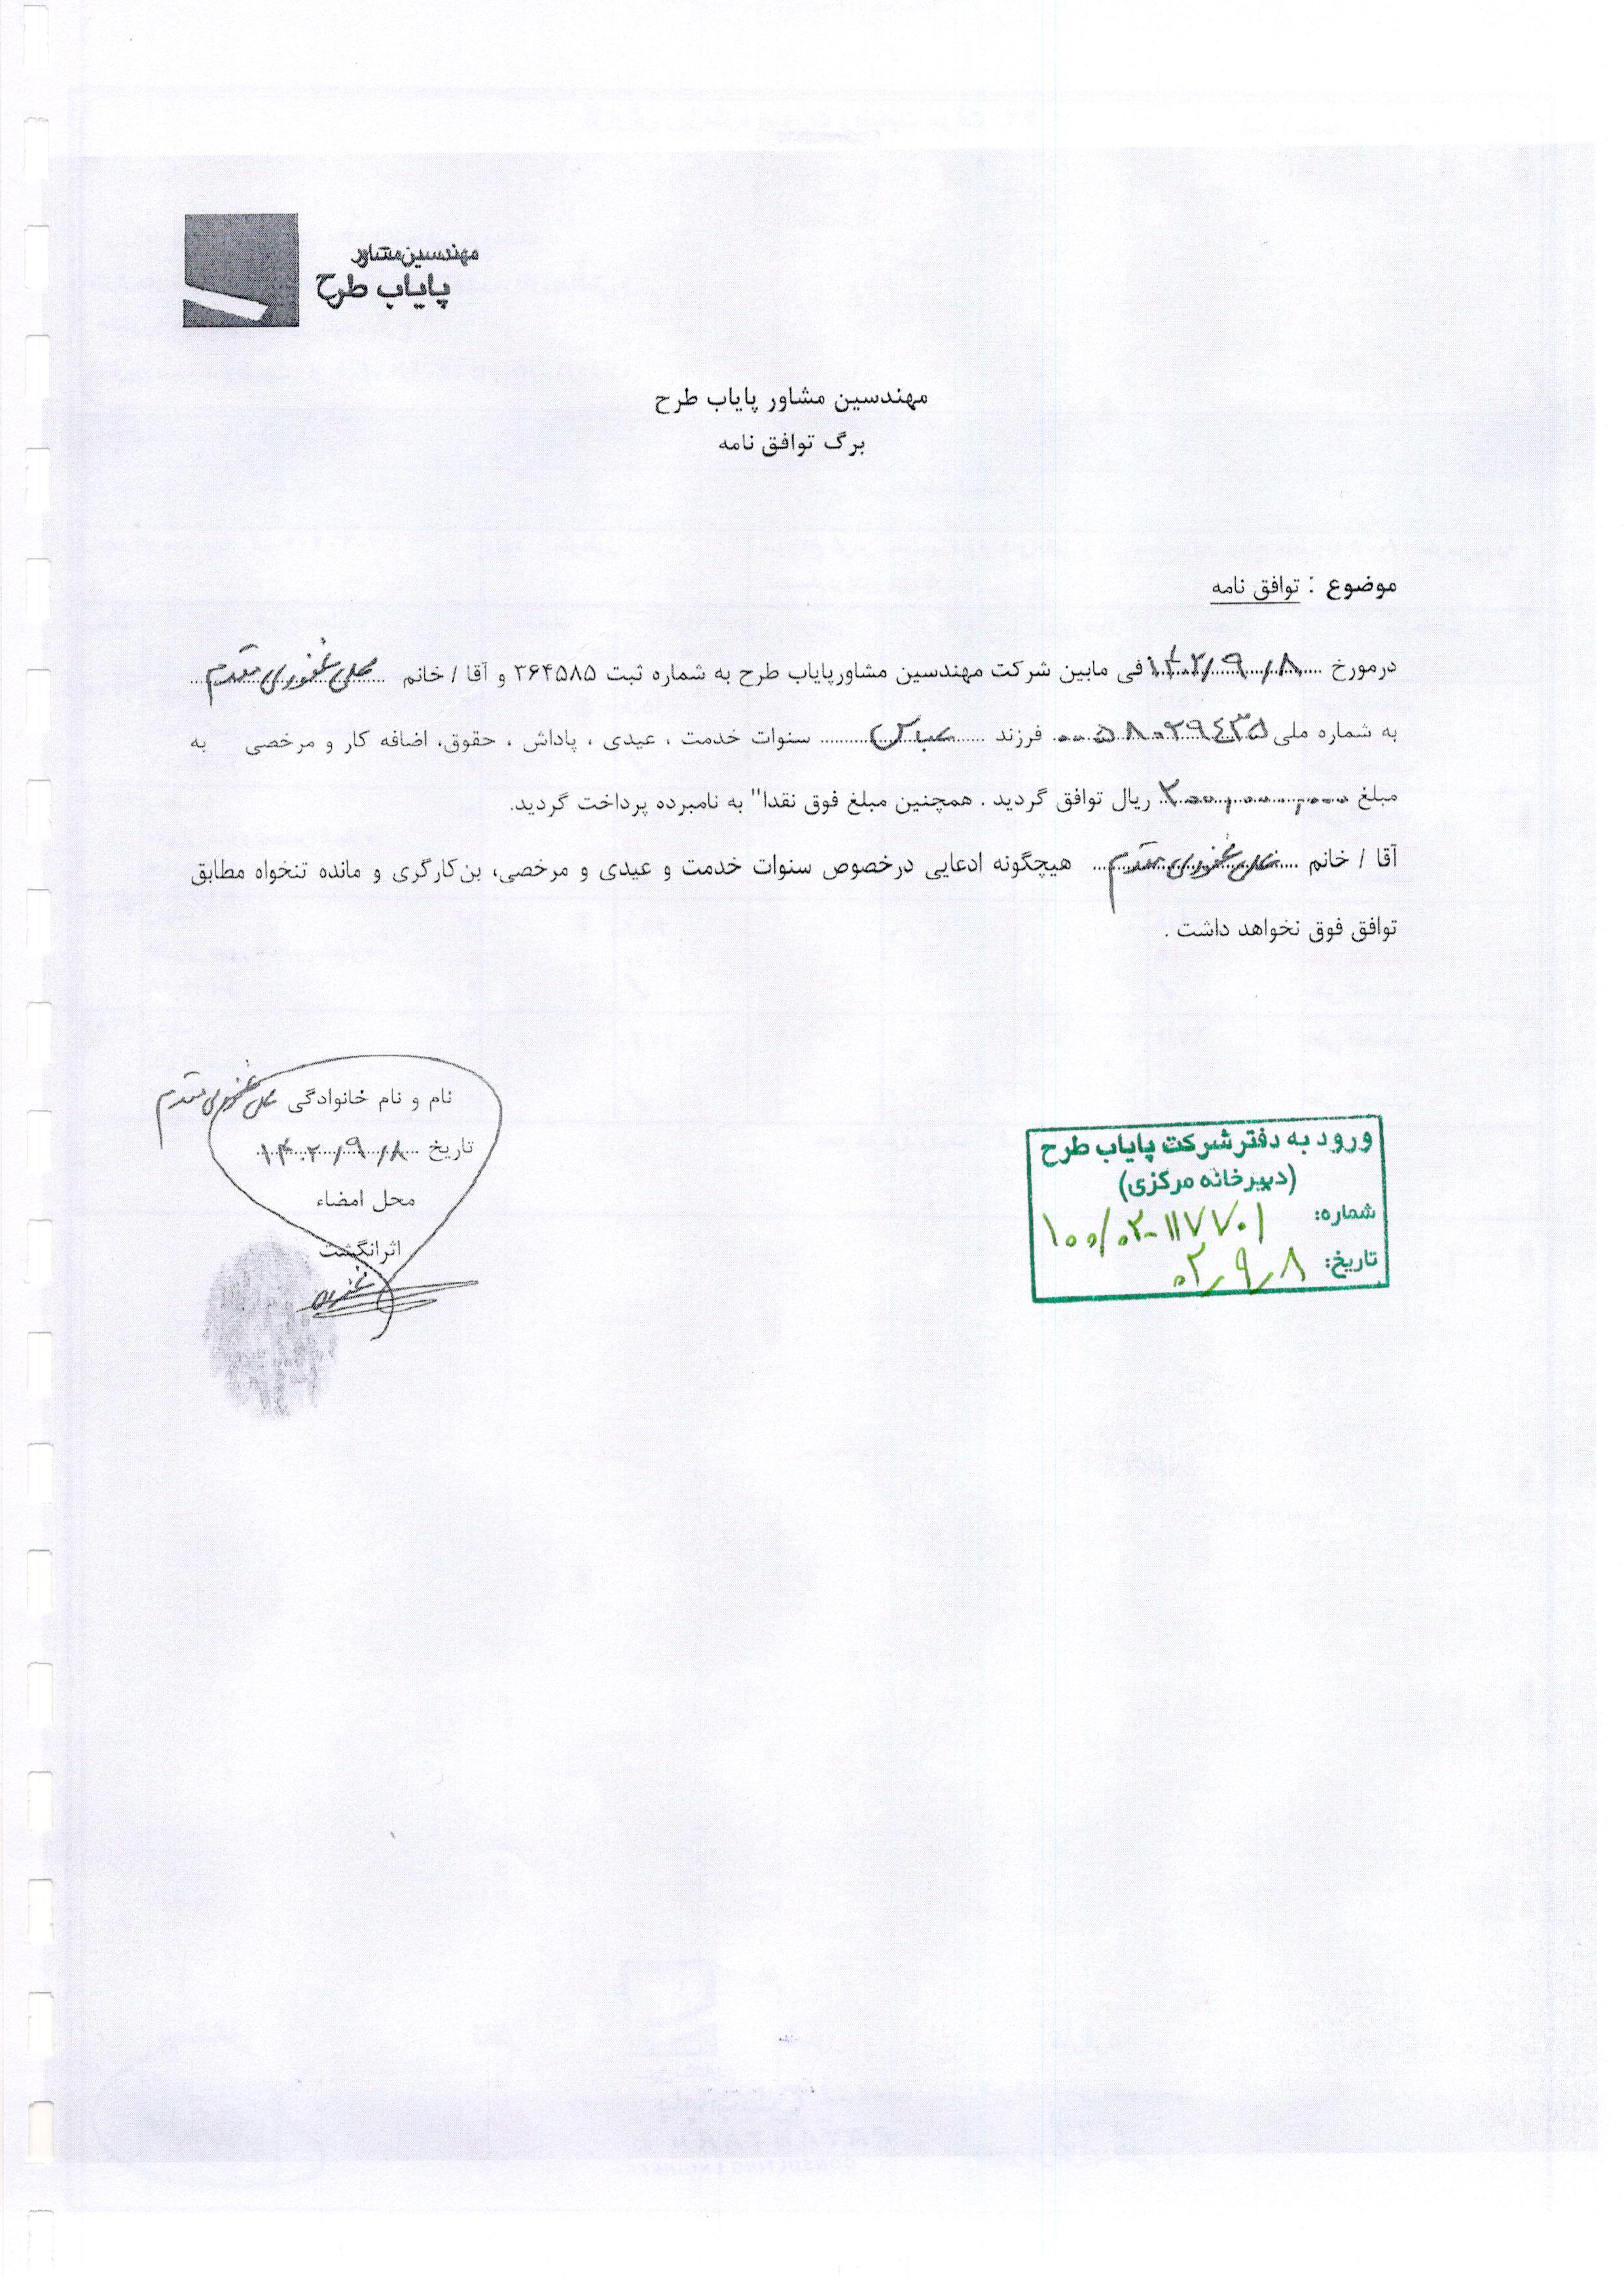 مهندسین مشاور
پایاب طرح
مهندسین مشاور پایاب طرح
برگ توافق نامه
موضوع : توافق نامه
درمورخ ۱۴۰۲/۹/۸ فی مابین شرکت مهندسین مشاورپایاب طرح به شماره ثبت ۳۶۴۵۸۵ و آقا / خانم علی غفوری مقدم
به شماره ملی ۰۰۵۸۰۲۹٤۳۵ فرزند عباس سنوات خدمت ، عیدی ، پاداش ، حقوق، اضافه کار و مرخصی به
مبلغ ۳۰۰,۰۰۰,۰۰۰ ریال توافق گردید . همچنین مبلغ فوق نقدا" به نامبرده پرداخت گردید.
آقا / خانم علی غفوری مقدم هیچگونه ادعایی درخصوص سنوات خدمت و عیدی و مرخصی، بن‌کارگری و مانده تنخواه مطابق
توافق فوق نخواهد داشت .
نام و نام خانوادگی علی غفوری مقدم
تاریخ ۱۴۰۲/۹/۸
محل امضاء
اثرانگشت
ورود به دفتر شرکت پایاب طرح
(دبیرخانه مرکزی)
شماره: ۱۰۰/۰۲-۱۱۷۷۰۱
تاریخ: ۰۲,۹,۸